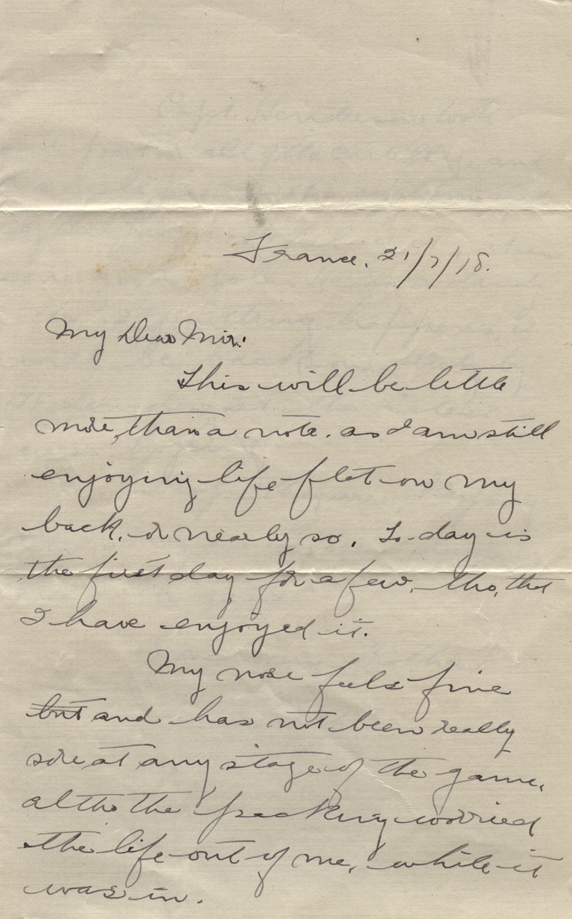 France, 21/7/18.
My Dear Mir:
This will be little
more, than a note. as I am still
enjoying life flat on my
back, or nearly so. To-day is
the first day for a few, tho, that
I have enjoyed it.
My nose feels fine
but and has not been really
sore at any stage of the game,
altho the packing worried
the life out of me, while it
was in.